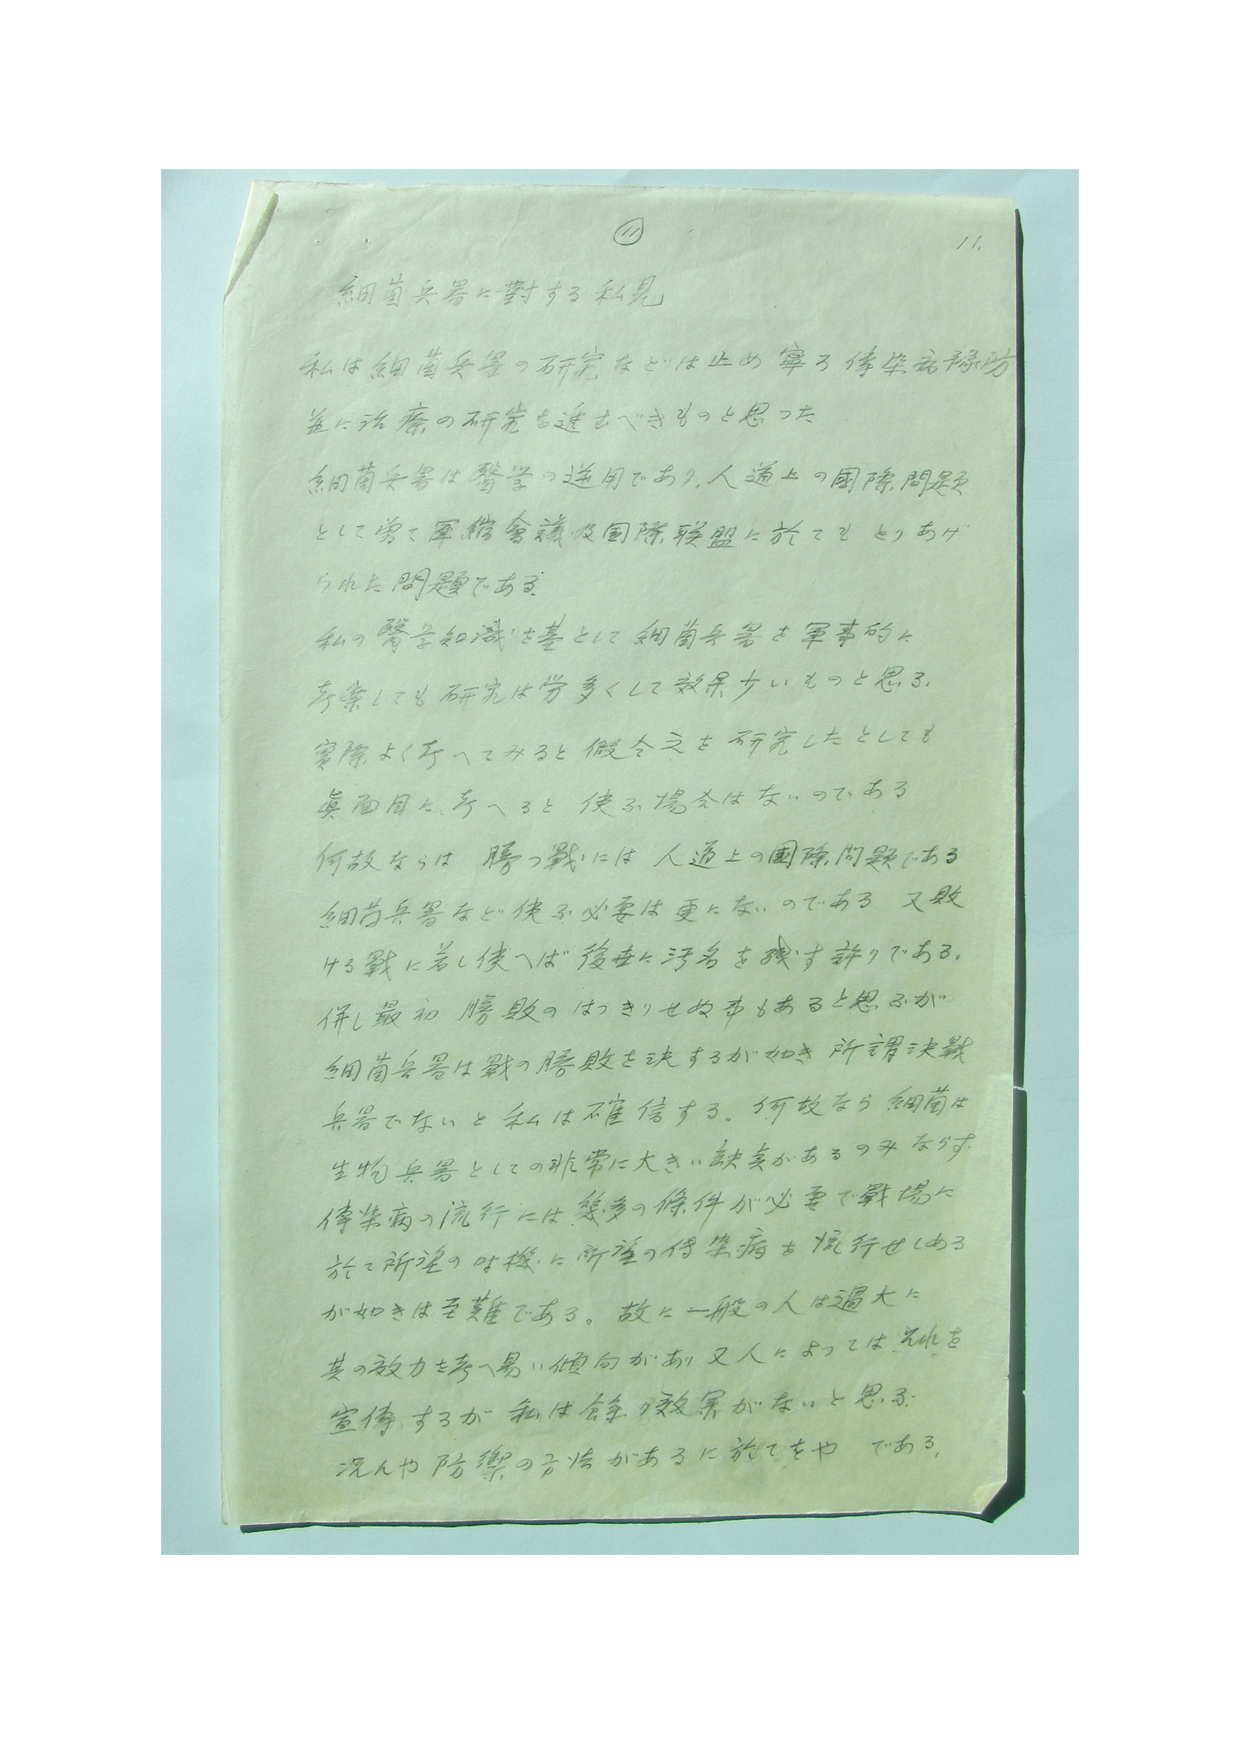 ⑪
11.
細菌兵器に對する私見
私は細菌兵器の研究などは止め寧ろ傳染病豫防
並に治療の研究を進むべきものと思った
細菌兵器は醫学の逆用であり、人道上の国際問題
として嘗て軍縮會議及国際联盟に於てもとりあげ
られた問題である。
私の醫学知識を基として細菌兵器を軍事的に
考察しても研究は労多くして効果少いものと思ふ、
實際よく考へてみると假令之を研究したとしても
眞面目に考へると使ふ場合はないのである
何故ならは 勝つ戰には人道上の國際問題である
細菌兵器など使ふ必要は更にないのである 又敗
ける戰に若し使へば後世に汚名を残す許りである。
併し最初勝敗のはっきりせぬ事もあると思ふが
細菌兵器は戰の勝敗を決するが如き所謂決戰
兵器でないと私は確信する。何故なら細菌は
生物兵器としての非常に大きい缺奌があるのみならず
傳染病の流行には幾多の條件が必要で戰場に
於て所望の時機に所望の傳染病を流行せしめる
が如きは至難である。故に一般の人は過大に
其の效力を考へ易い傾向があり又人によってはそれを
宣傳するが私は余り效果がないと思ふ
况んや防禦の方法があるに於てをや である。